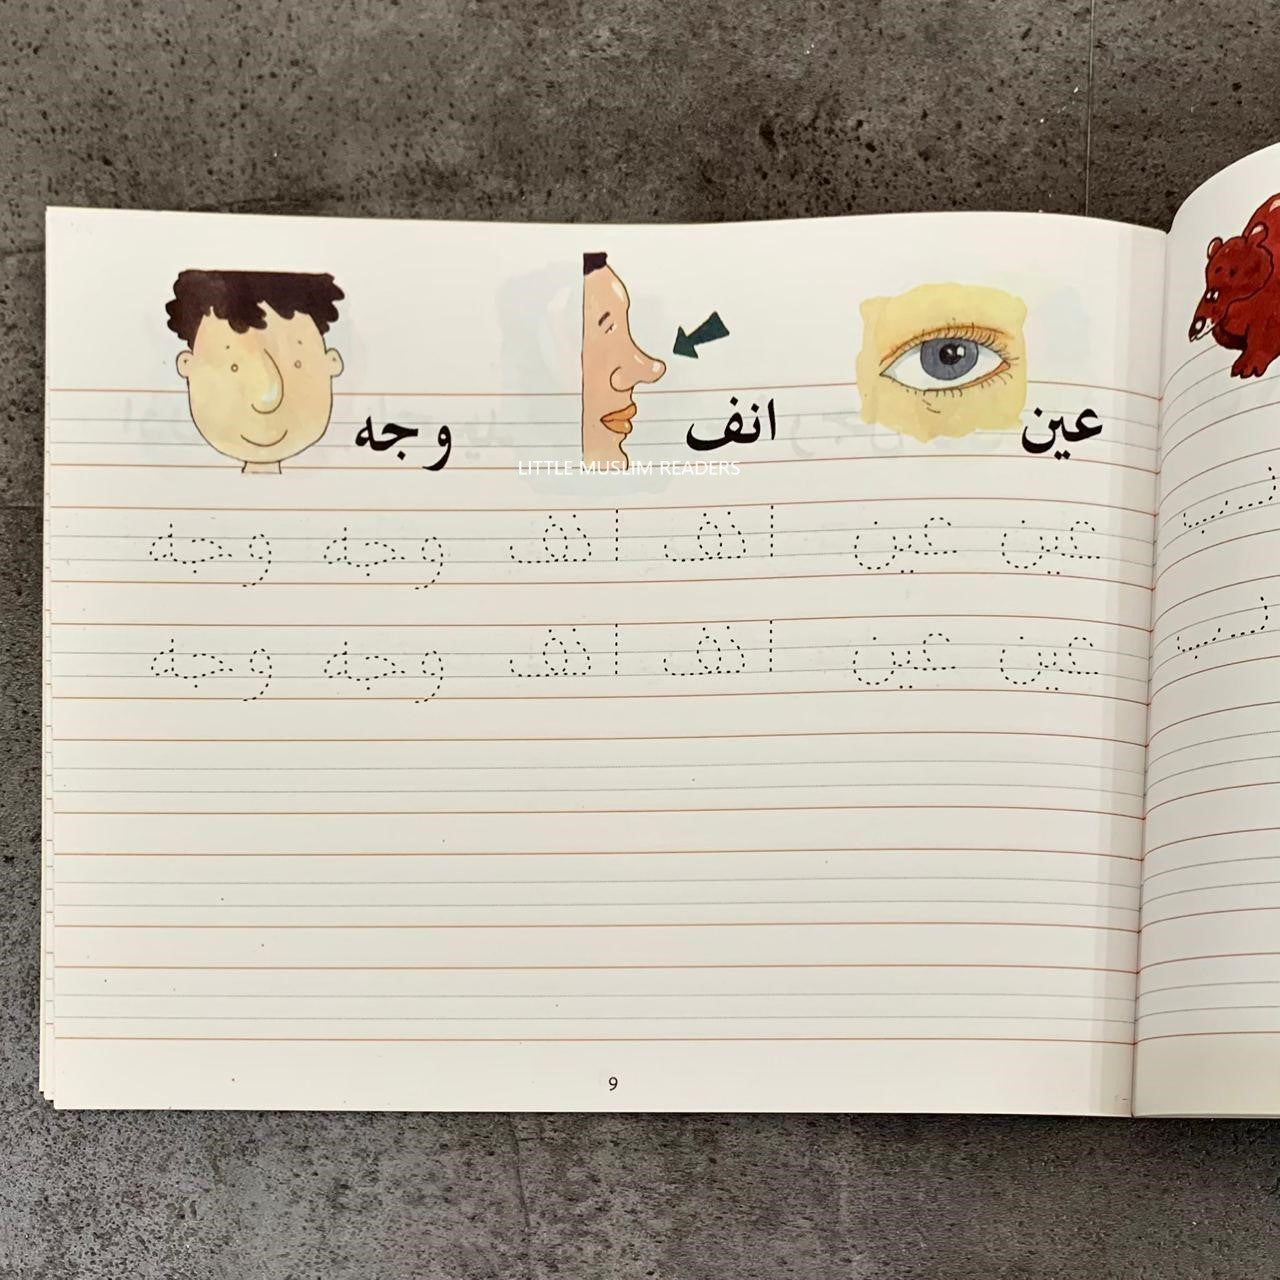 عين انف وجه
LITTLE MUSLIM READERS
عين عين انف انف وجه وجه
عين عين انف انف وجه وجه
9